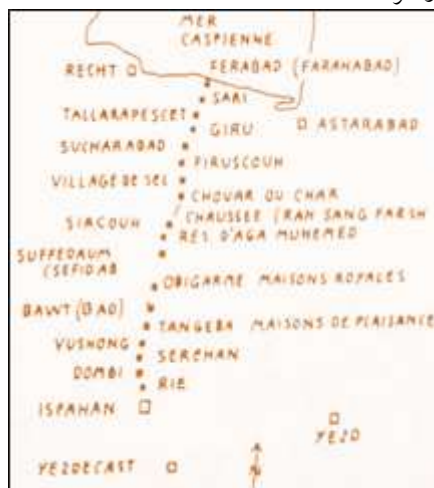 MER
CASPIENNE
RECHT
FERABAD (FARAHABAD)
SARI
TALLARAPESCET
GIRU
ASTARABAD
SUCHARABAD
PIRUSCOUH
VILLAGE DE SEL
CHOUAR OU CHAR
SIACOUH
CHAUSSEE (RAH SANG FARSH
RES D'AGA MUHEMED
SUFFEDAUM
(SEFIDAB
OBIGARME MAISONS ROYALES
BAWT (BAD)
TANGEBA MAISONS DE PLAISANCE
VUSHONG
SERCHAN
DOMBI
RIE
ISPAHAN
YEZD
YEZDECAST
N